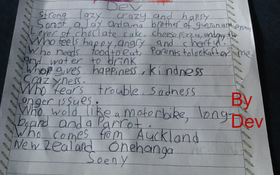 Dev
Strong lazy crazy and happy
Son of a
and a brother of
Lover of choclate cake, cheese
Who feels happy, angry and cheerful.
Who needs food to eat. Parents to look after me
and water to drink
Who gives happiness, kindness
crazyness.
Who fears trouble, sadness
anger issues.
Who would like a motorbike, long
board and a Parrot.
Who comes from Auckland
New Zealand Onehanga
Soeny
By
Dev